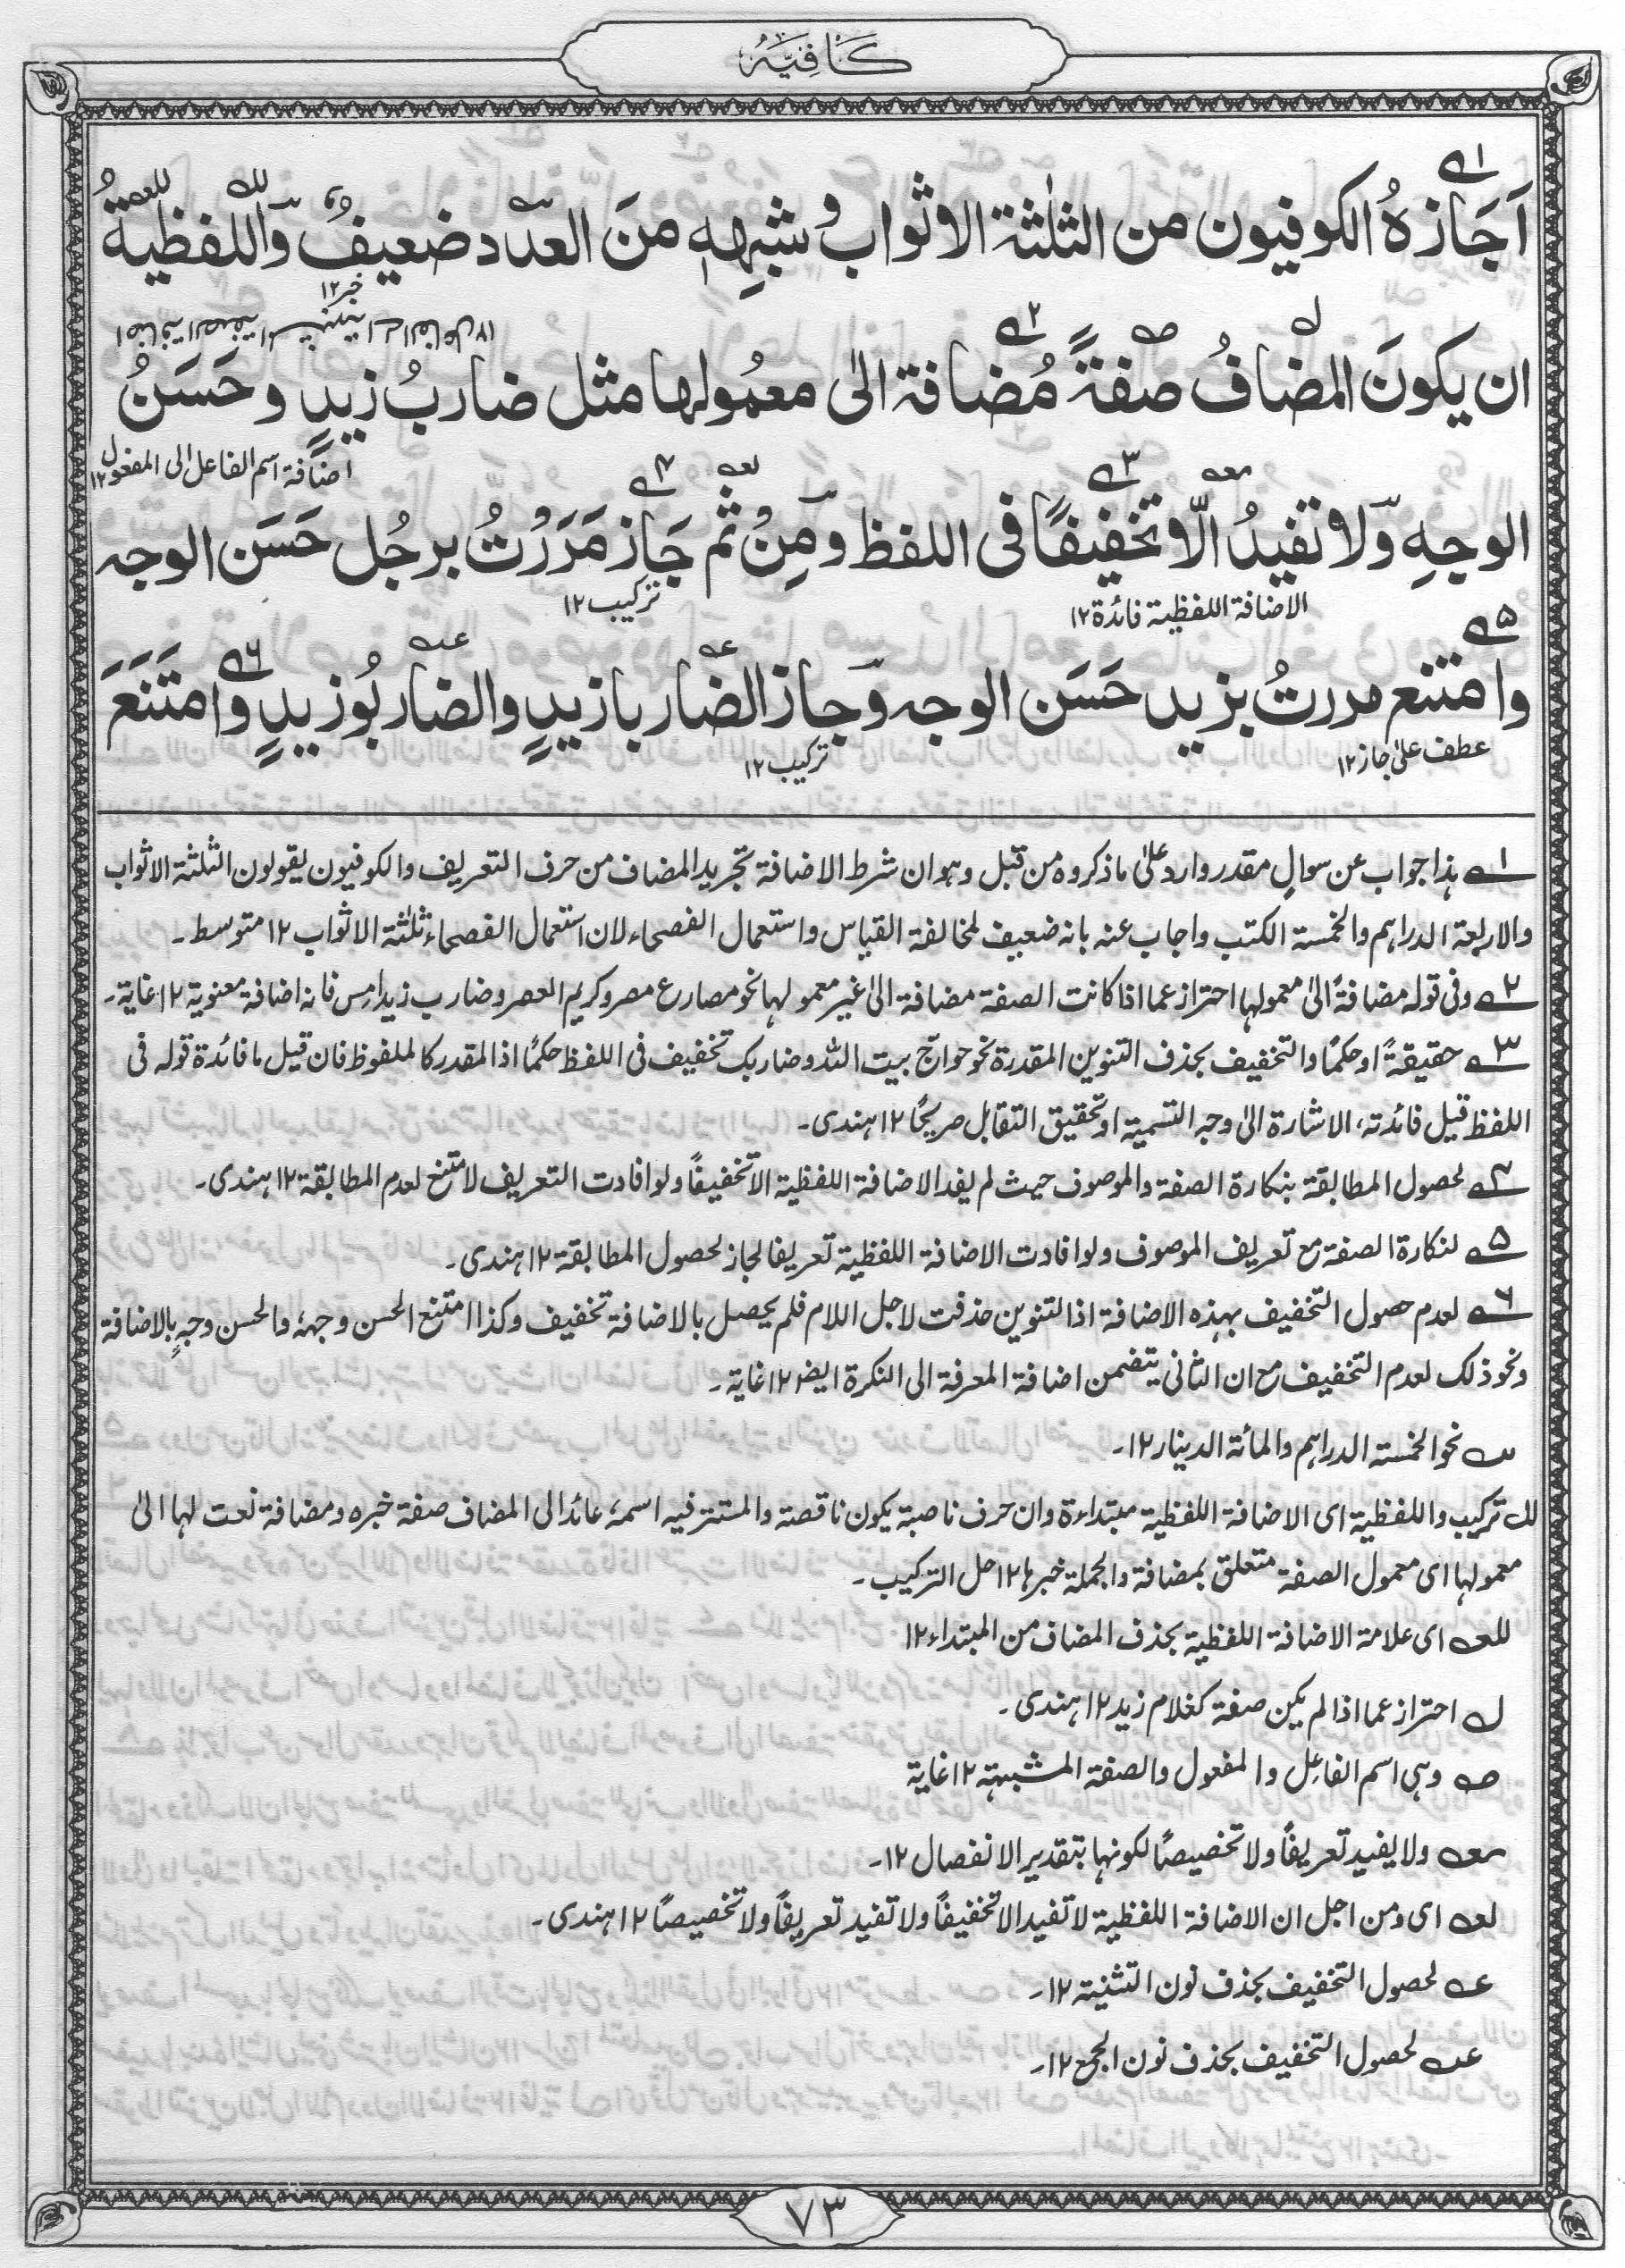 كَافِيَهُ
اَجَازهُ الكوفيون من الثلٰثة الاثواب وُشبِهِه منَ العدَد ضعيفٌ وَاللفظيةُ
خبر۱۲
ان يكونَ المضافُ صفةً مُضافة الىٰ معمُولها مثل ضاربُ زيدٍ و حَسَنُ
اضافة اسم الفاعل الى المفعول۱۲
الوجهِ وَلا تفيدُ الّا تخفيفًا فى اللفظ ومِنْ ثم جَاز مَرَرْتُ برجُل حَسَن الوجه
الاضافة اللفظية فائدة۱۲ تركيب۱۲
وامتنع مررتُ بزيد حَسَن الوجه وَجاز الضاربا زيدٍ والضاربُو زيدٍ وامتَنَعَ
عطف علىٰ جاز۱۲ تركيب۱۲
۱ هذا جواب عن سوالٍ مقدر وارد علىٰ ما ذكروه من قبل وهو ان شرط الاضافة تجريد المضاف من حرف التعريف والكوفيون يقولون الثلثة الاثواب
والاربعة الدراهم والخمسة الكتب واجاب عنه بانه ضعيف لمخالفة القياس واستعمال الفصحاء لان استعمال الفصحاء ثلٰثة الاثواب ۱۲ متوسط۔
۲ وفى قوله مضافةً الىٰ معمولها احتراز عما اذا كانت الصفة مضافة الىٰ غير معمولها نحو مصارع مصر وكريم العصر وضارب زيد امس فانه اضافة معنوية ۱۲ غاية۔
۳ حقيقةً او حكمًا والتخفيف بحذف التنوين المقدرة نحو حواجّ بيت الله وضاربك تخفيف فى اللفظ حكمًا اذا المقدر كالملفوظ فان قيل ما فائدة قوله فى
اللفظ قيل فائدته، الاشارة الىٰ وجه التسمية او تحقيق التقابل صريحًا ۱۲ هندى۔
۴ لحصول المطابقة بنكارة الصفة والموصوف حيث لم يفد الاضافة اللفظية الا تخفيفًا ولو افادت التعريف لامتنع لعدم المطابقة ۱۲ هندى۔
۵ لنكارة الصفة مع تعريف الموصوف ولو افادت الاضافة اللفظية تعريفا لجاز لحصول المطابقة ۱۲ هندى۔
۶ لعدم حصول التخفيف بهذه الاضافة اذا التنوين حذفت لاجل اللام فلم يحصل بالاضافة تخفيف وكذا امتنع الحسن وجهه والحسن وجهٍ بالاضافة
ونحو ذلك لعدم التخفيف مع ان الثانى يتضمن اضافة المعرفة الى النكرة ايضا ۱۲ غاية۔
نحو الخمسة الدراهم والمائة الدينار ۱۲۔
لك تركيب واللفظية اى الاضافة اللفظية مبتداءة وان حرف ناصبة يكون ناقصة والمستتر فيه اسمه عائد الى المضاف صفة خبره ومضافة نعت لها الىٰ
معمولها اى معمول الصفة متعلق بمضافة والجملة خبرها ۱۲ حل التركيب۔
للعه اى علامة الاضافة اللفظية بحذف المضاف من المبتداء ۱۲
ل احتراز عما اذا لم يكن صفة كغلام زيد ۱۲ هندى۔
صه وهى اسم الفاعل والمفعول والصفة المشبهة ۱۲ غاية
معه ولا يفيد تعريفاً ولا تخصيصاً لكونها بتقدير الانفصال ۱۲۔
لعه اى ومن اجل ان الاضافة اللفظية لا تفيد الا تخفيفاً ولا تفيد تعريفاً ولا تخصيصاً ۱۲ هندى۔
عه لحصول التخفيف بحذف نون التثنية ۱۲۔
عه لحصول التخفيف بحذف نون الجمع ۱۲۔
۷۳